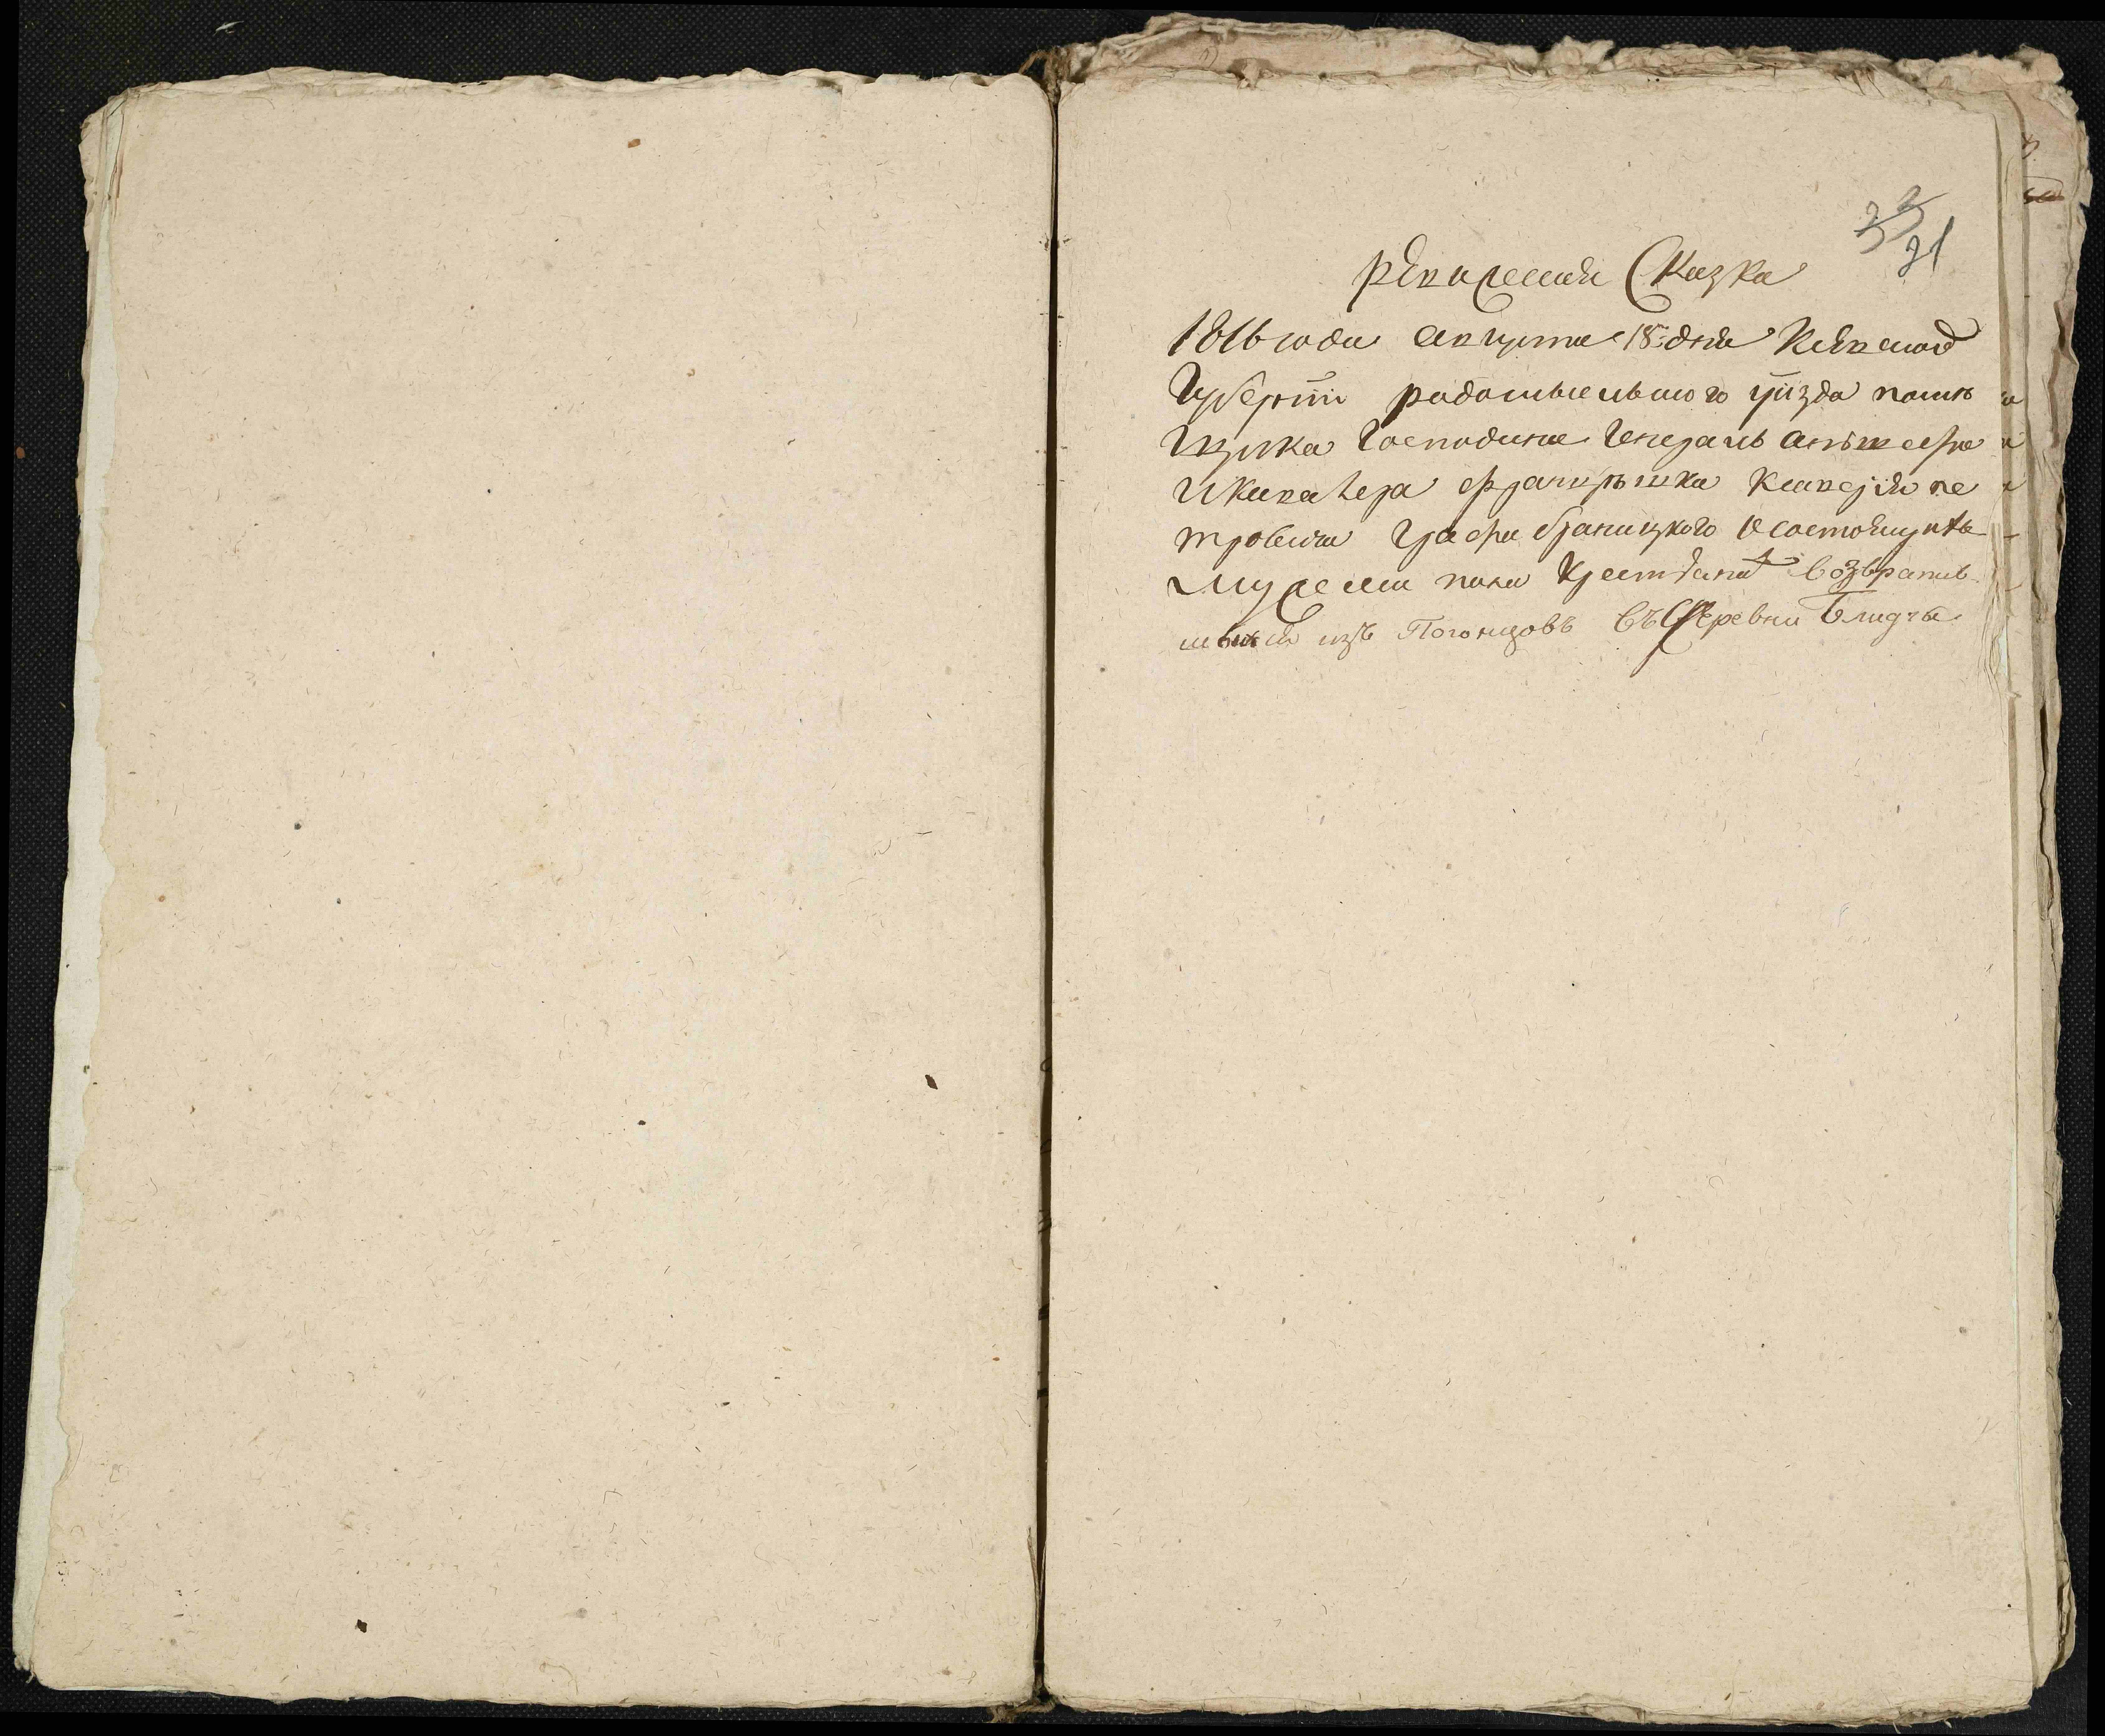 33
31
ревизская Сказка
1816 года августа 18: дня Киевской
Губернiи радомысльского уезда помѣ
щика Господина Генералъ аншефа
И Кавалера францышка ксаверiя пе
тровича Графа браницкого О состоящихъ
мужеска пола крестьянахъ возвратив
шихся изъ Погонцовъ въ Деревни Блидча